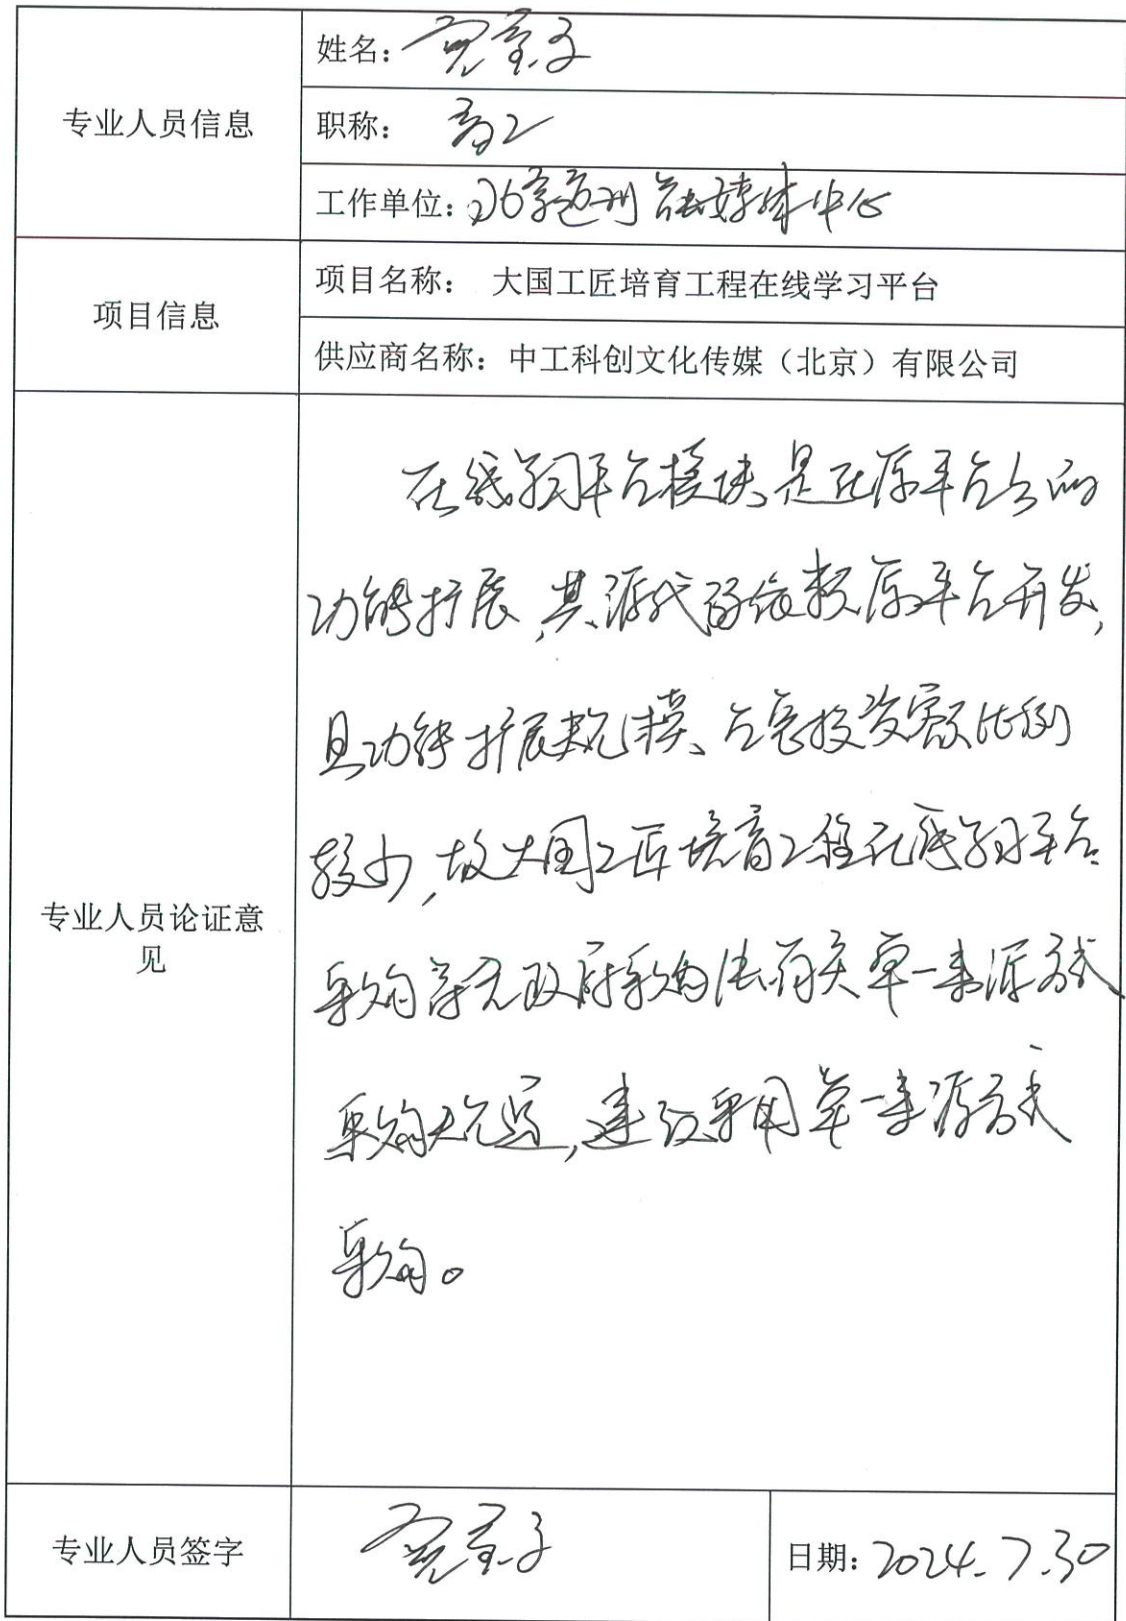 专业人员信息
姓名：
职称：高工
工作单位：北京通州融媒体中心
项目信息
项目名称： 大国工匠培育工程在线学习平台
供应商名称：中工科创文化传媒（北京）有限公司
专业人员论证意
见
在线学习平台模块，是在原平台上的
功能扩展，其源代码依赖原平台开发，
且功能扩展规模、占总投资额比例
较少，故大国工匠培育工程在线学习平台
采购符合政府采购法有关单一来源方式
采购规定，建议采用单一来源方式
采购。
专业人员签字
日期：2024.7.30